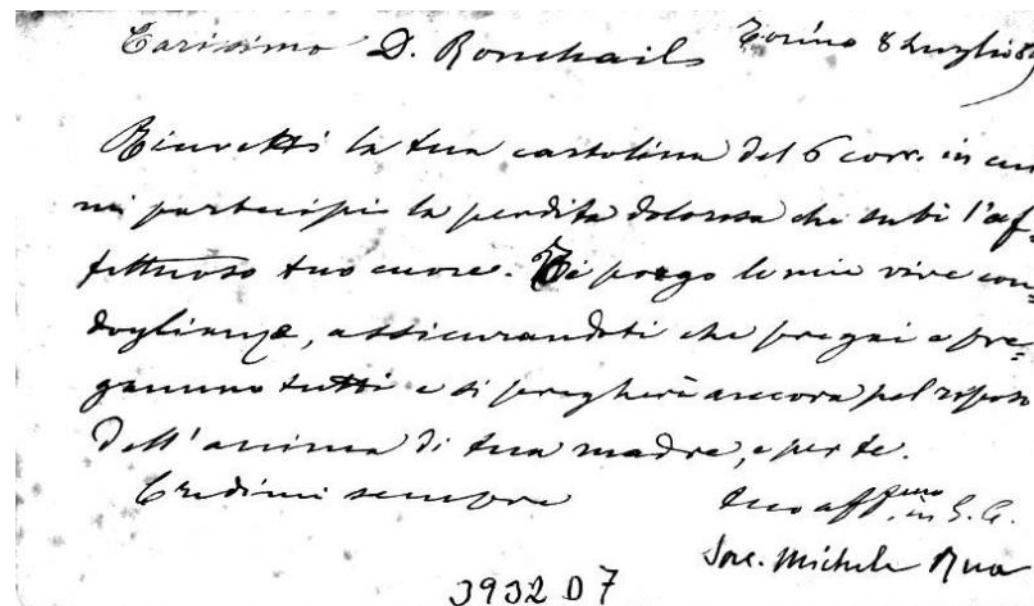 Carissimo D. Ronchail Torino 8 Luglio 89
Ricevetti la tua cartolina del 6 corr. in cui
mi partecipi la perdita dolorosa che subì l'af=
fettuoso tuo cuore. Ti porgo le mie vive con=
doglianze, assicurandoti che pregai e pre=
gammo tutti e si pregherà ancora pel riposo
dell'anima di tua madre, e per te.
Credimi sempre
tuo aff.mo in G. C.
Sac. Michele Rua
3932 D 7